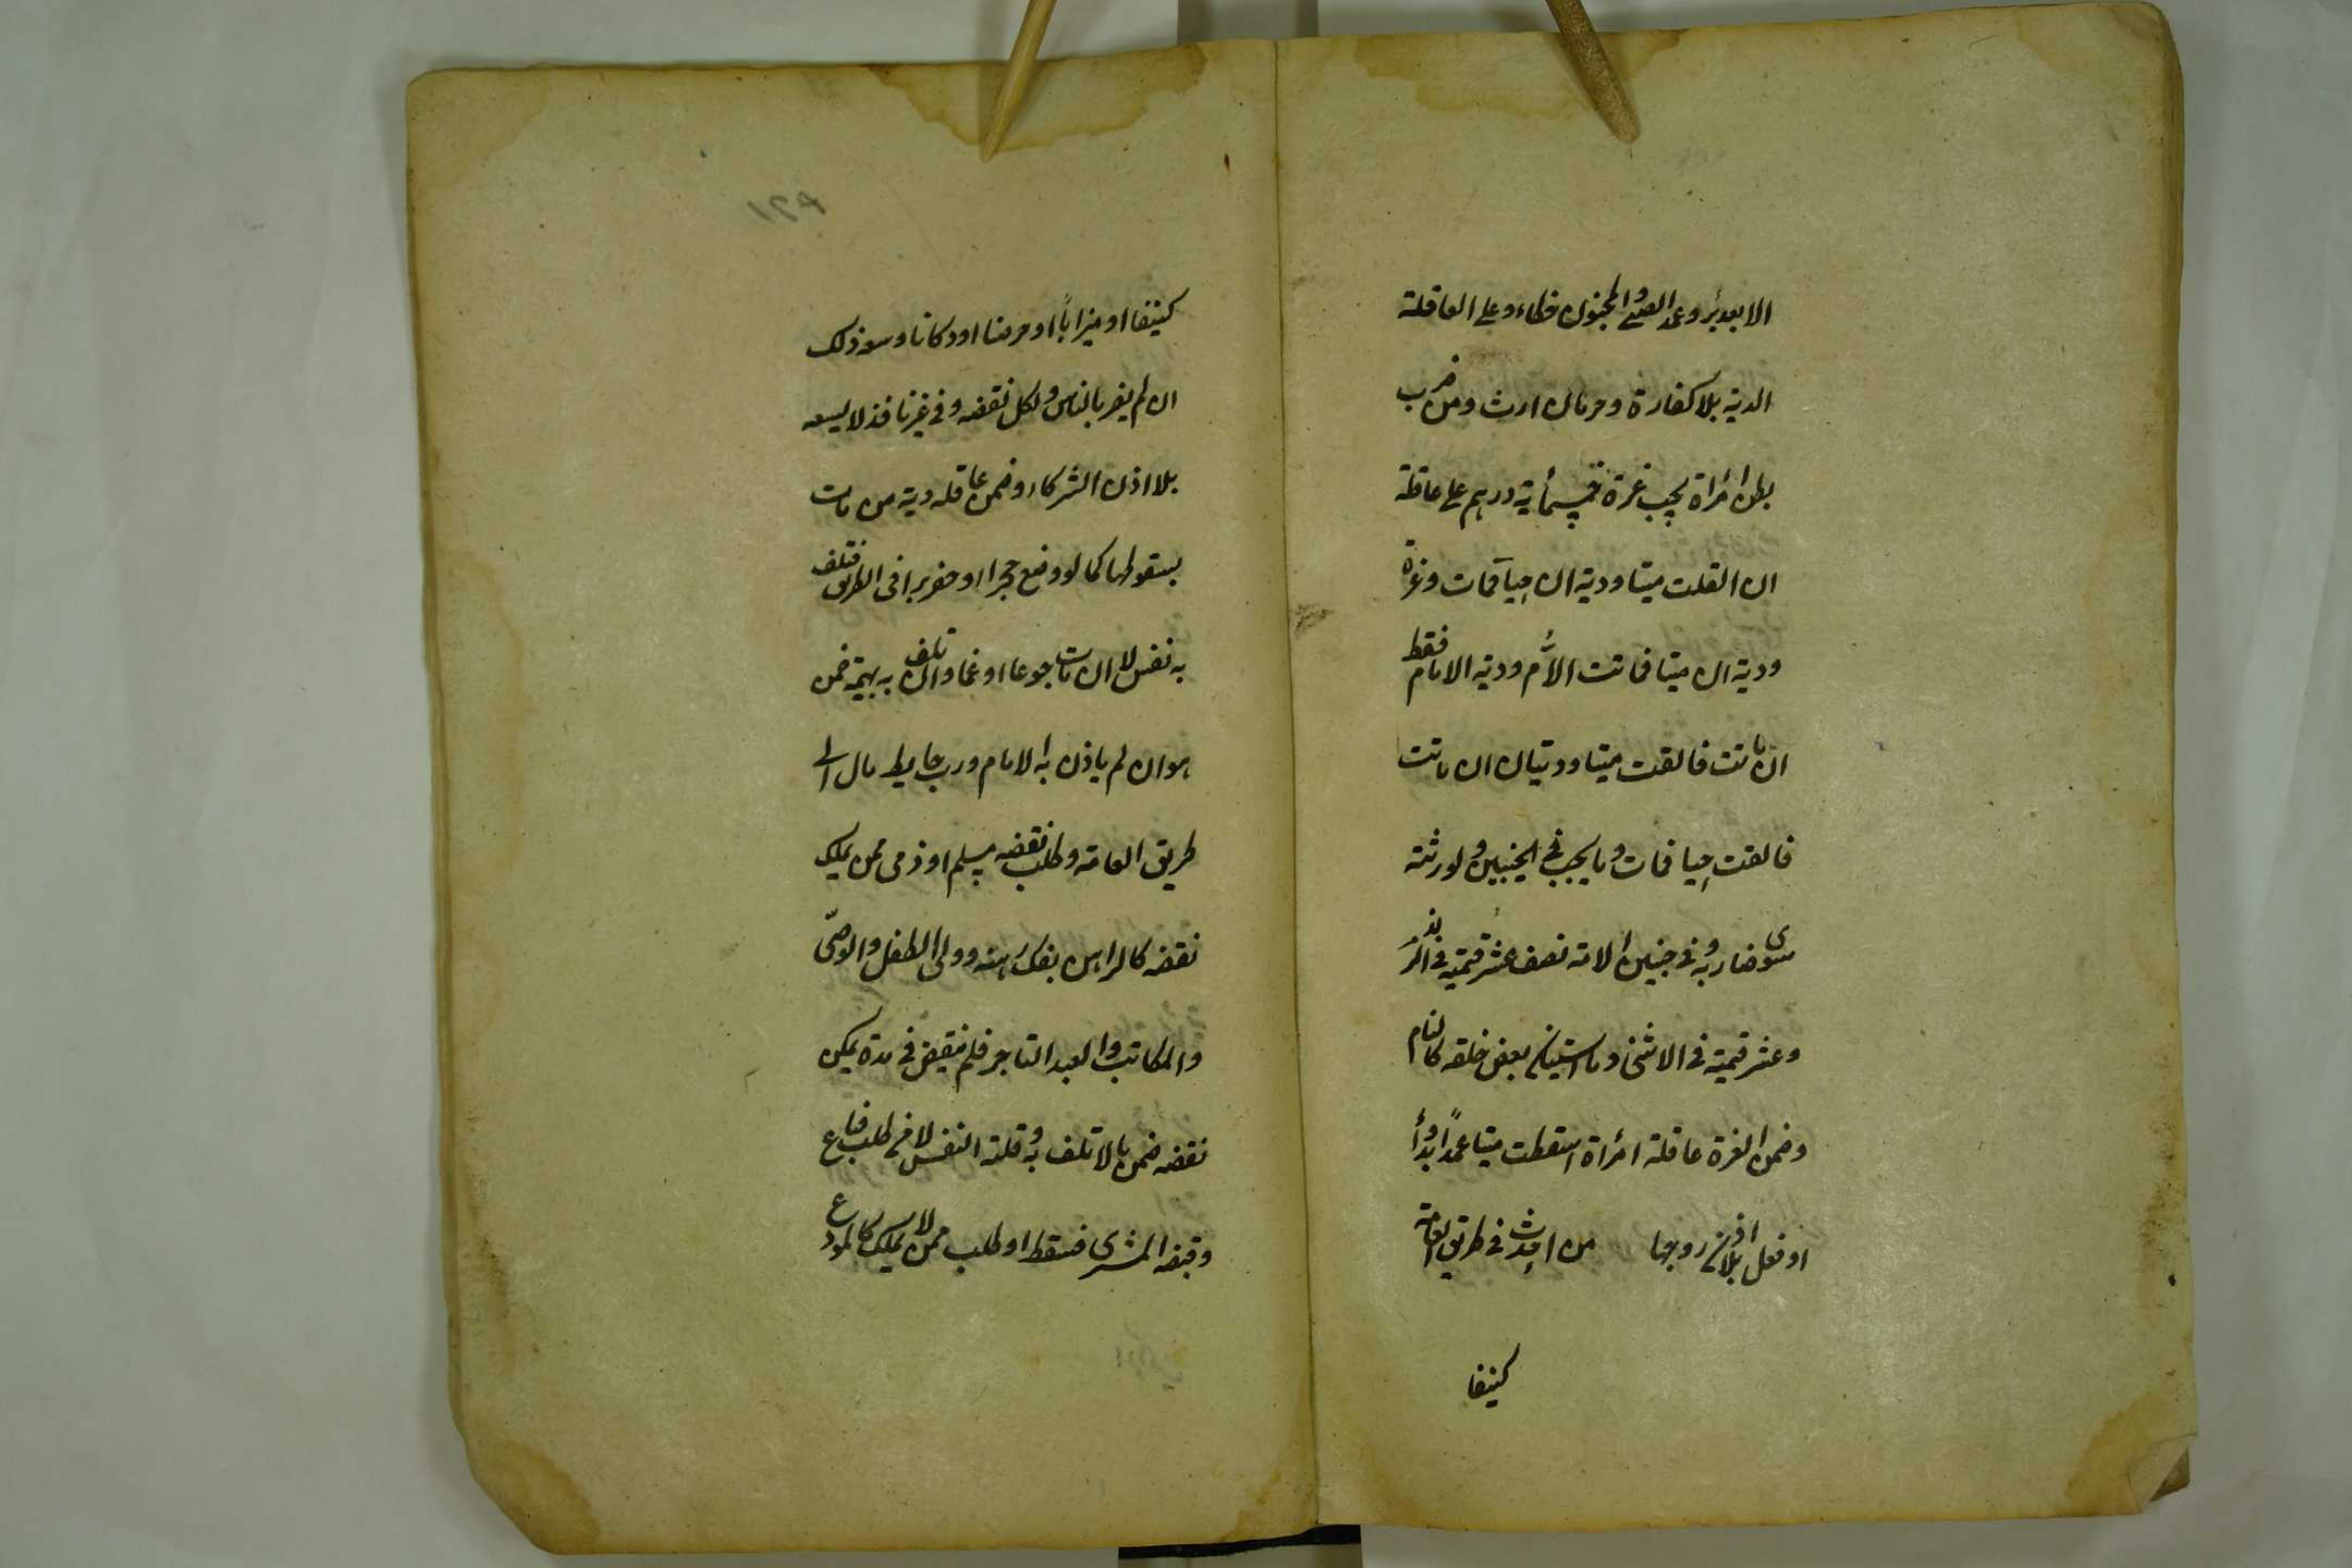 الا بعد برء وعمد الصبي والمجنون خطاء وعلى العاقلة
الدية بلا كفارة وحرمان ارث ومن ضرب
بطن امرأة يجب غرة خمسمأية درهم على عاقلته
ان القت ميتا ودية ان حيا فمات وغرة
ودية ان ميتا فماتت الأم ودية الام فقط
ان ماتت فالقت ميتا وديتان ان ماتت
فالقت حيا فمات وما يجب في الجنين لورثته
سوى ضاربه وفي جنين الامة نصف عشر قيمته في الذكر
وعشر قيمته في الانثى وما استبان بعض خلقه كالتام
وضمن الغرة عاقلة امرأة اسقطت ميتا عمدا بدواء
او فعل بلا اذن زوجها من احدث في طريق العامة
كنيفا
١٢٩
كنيفا او ميزابا او جرصنا او دكانا وسعه ذلك
ان لم يضر بالناس ولكل نقضه وفي غير نافذ لا يسعه
بلا اذن الشركاء وضمن عاقلته دية من مات
بسقوطها كما لو وضع حجرا او حفر بيرا في الطريق فتلف
به نفس لا ان مات جوعا او غما وان تلف به بهيمة ضمن
هو ان لم ياذن به الامام ورب حايط مال الى
طريق العامة وطلب نقضه مسلم او ذمي ممن يملك
نقضه كالراهن بفك رهنه وولي الطفل والوصي
والمكاتب والعبد التاجر فلم ينقض في مدة يمكن
نقضه ضمن مالا تلف به وعاقلته النفس لا من طلب فباع
وقبضه المشتري فسقط او طلب ممن لا يملك كالمودع